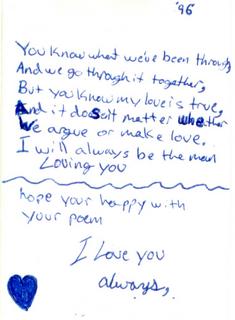 '96
You know what we've been through,
And we go through it together,
But you know my love is true,
And it doesn't matter whether
We argue or make love.
I will always be the man
Loving you
hope your happy with
your poem
I love you
always,